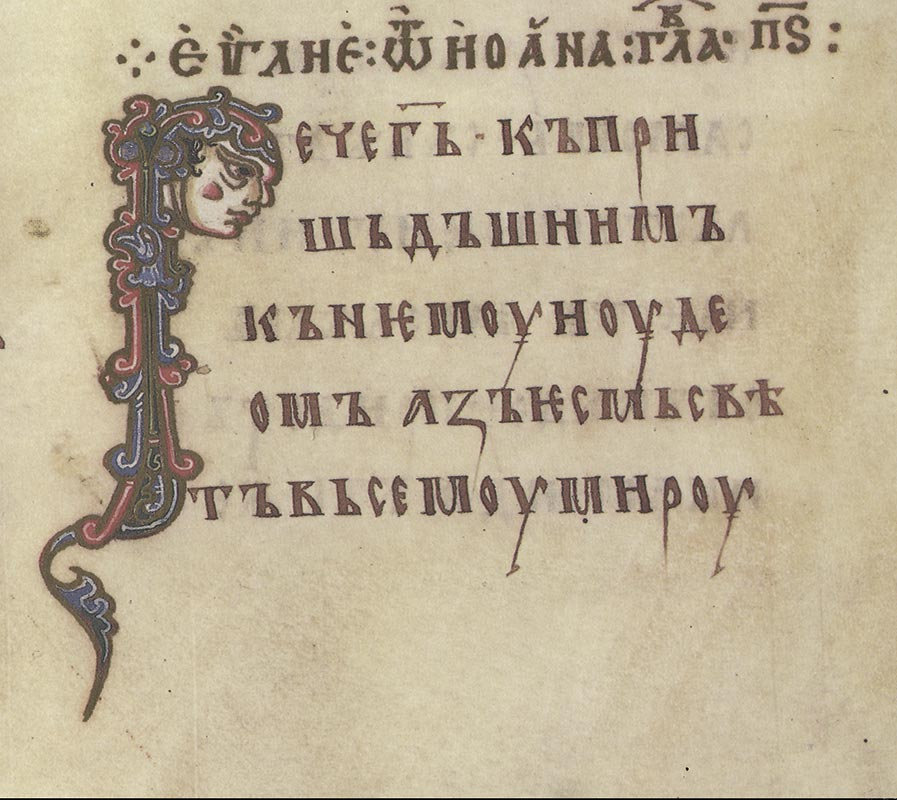 ⁘ Ѐ ѴГЛИѐ : Ѿ ИОАНА : ГЛАв҃ П҃Ѕ :
Рече г҃ь · къ при
шьдъшиимъ
къ нѥмоу июде
омъ азъ ѥсмь свѣ
тъ вьсемоу мироу